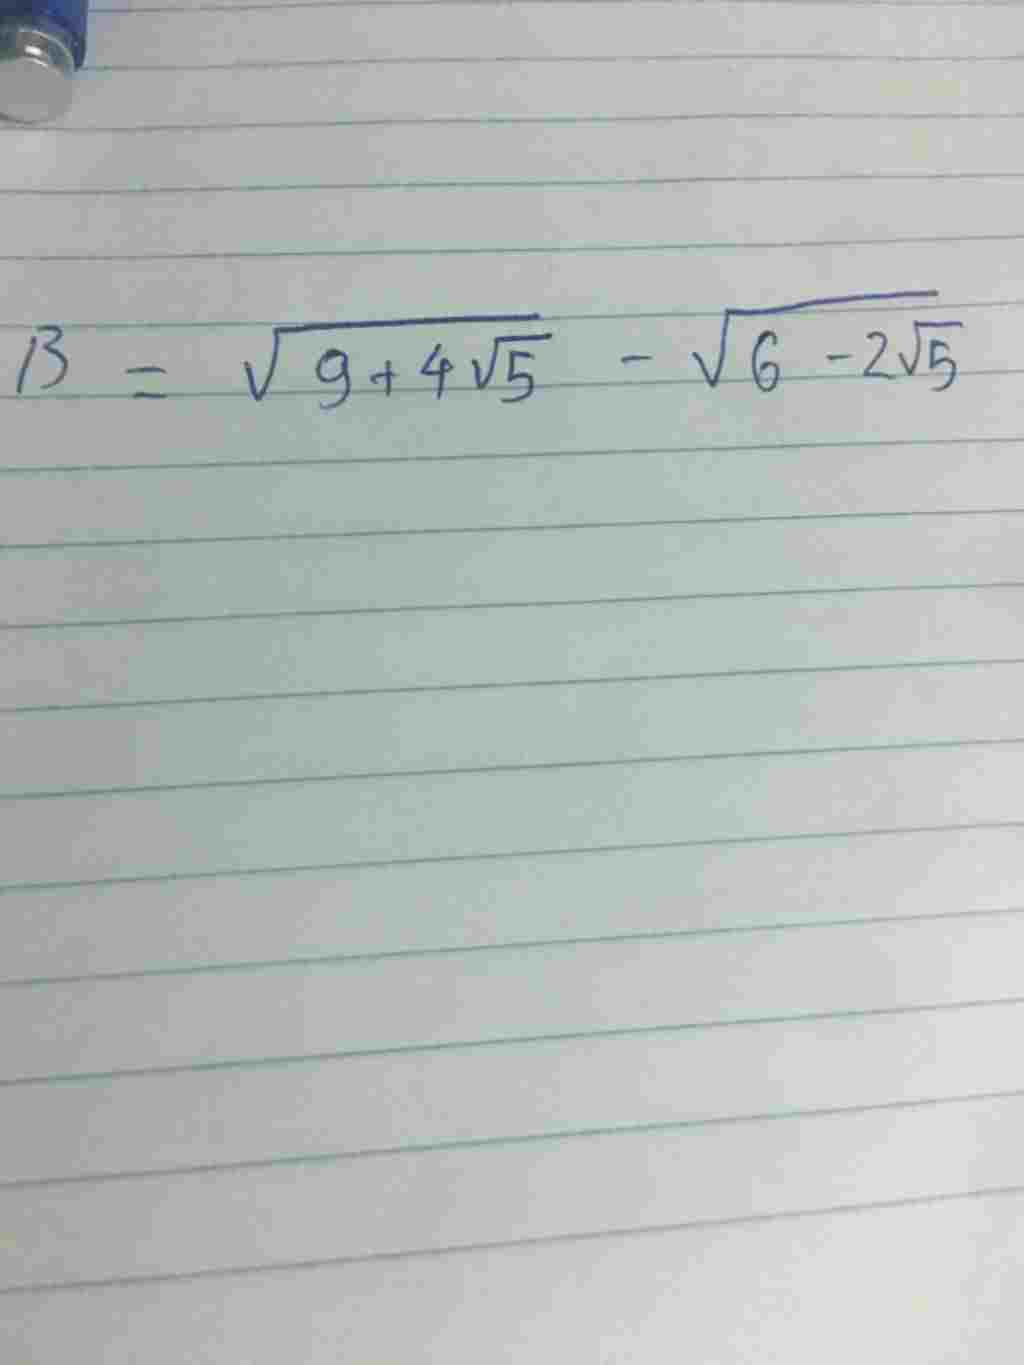 B = √(9 + 4√5) - √(6 - 2√5)